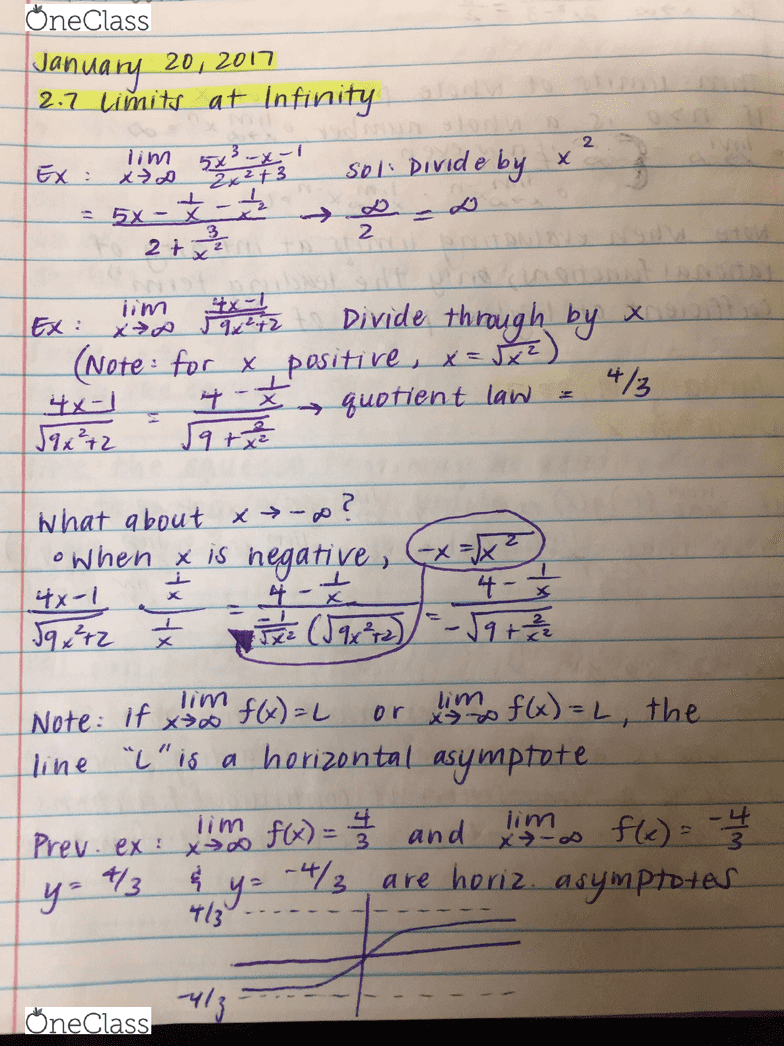 OneClass
January 20, 2017
2.7 Limits at Infinity
Ex : lim x→∞ 5x³-x-1 / 2x²+3 sol: Divide by x²
= 5x - 1/x - 1/x² / 2 + 3/x² → ∞/2 = ∞
Ex : lim x→∞ 4x-1 / √9x²+2 Divide through by x
(Note: for x positive, x = √x²)
4x-1 / √9x²+2 = 4 - 1/x / √9 + 2/x² → quotient law = 4/3
What about x → -∞?
• When x is negative, -x = √x²
4x-1 / √9x²+2 · 1/x / 1/x = 4 - 1/x / -1/√x² (√9x²+2) = 4 - 1/x / -√9 + 2/x²
Note: if lim x→∞ f(x) = L or lim x→-∞ f(x) = L, the
line "L" is a horizontal asymptote
Prev. ex : lim x→∞ f(x) = 4/3 and lim x→-∞ f(x) = -4/3
y = 4/3 & y = -4/3 are horiz. asymptotes
4/3
-4/3
OneClass